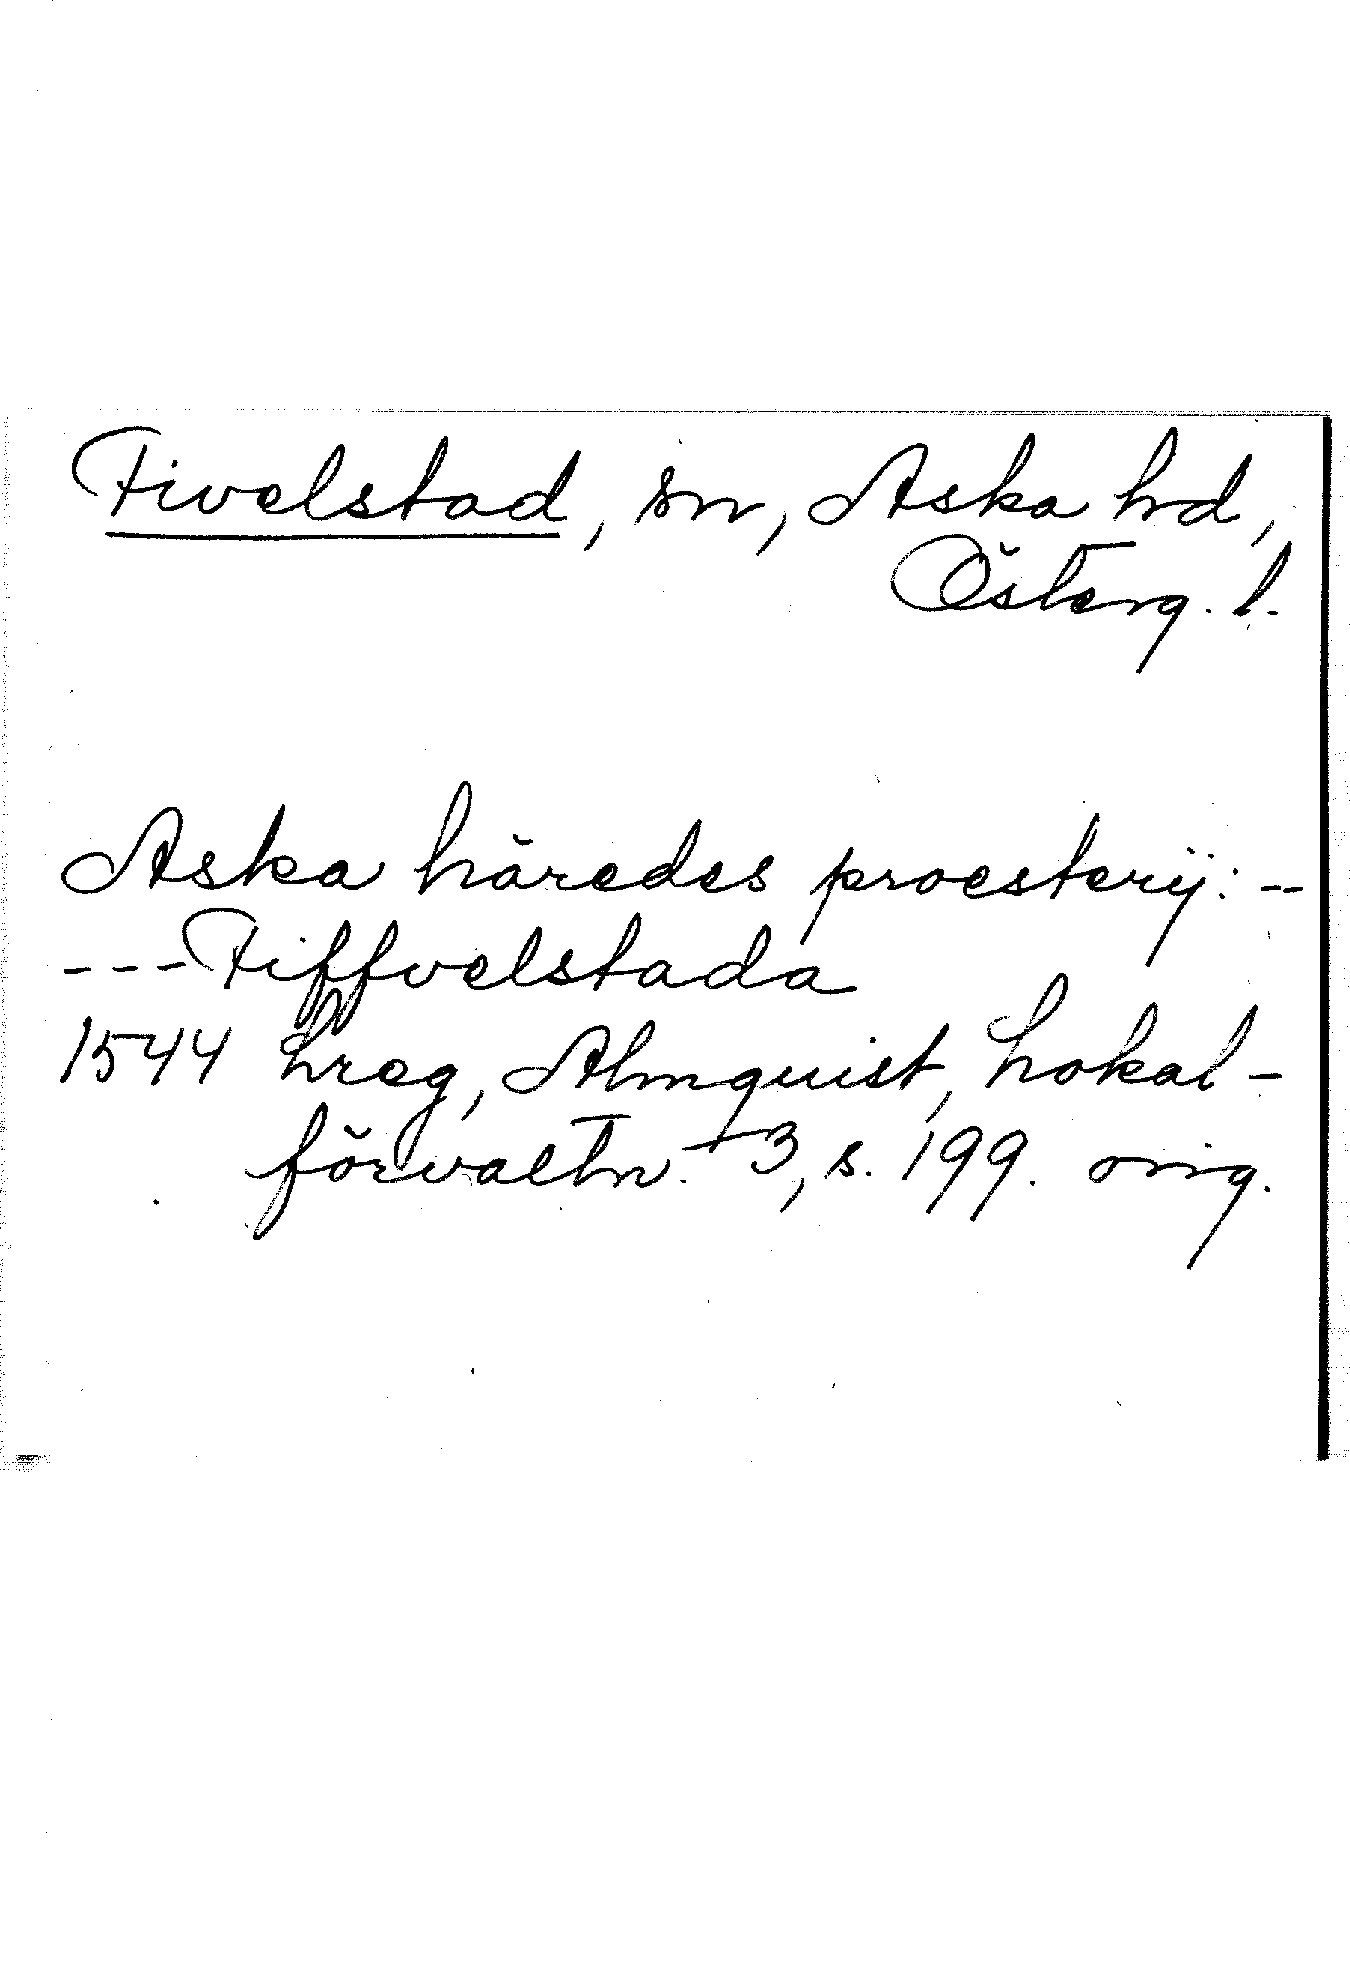 Fivelstad, sn, Aska hd,
Österg. l.
Aska häredes proesterij: --
--- Fiffvelstada
1544 Lreg, Almquist, Lokal-
förvaltn. 3, s. 199. orig.